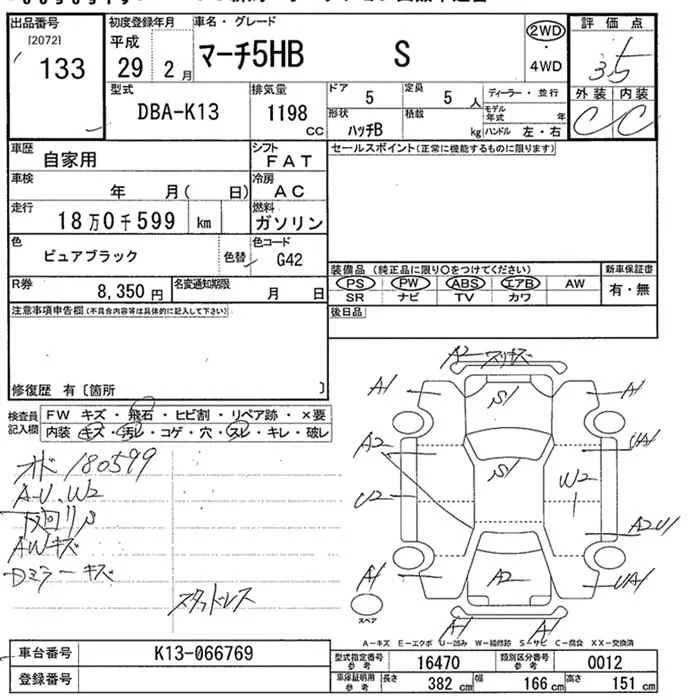 出品番号
[2072]
133
初度登録年月
平成
29 2 月
車名・グレード
マーチ5HB S
2WD
・
4WD
評価点
3.5
外装 内装
C C
型式
DBA-K13
排気量
1198
CC
ドア
5
定員
5 人
ディーラー・並行
形状
ハッチB
積載
kg
モデル年式 年
ハンドル 左・右
車歴
自家用
シフト
FAT
車検
年 月( 日)
冷房
AC
走行
18万0千599 km
燃料
ガソリン
色
ピュアブラック
色替
色コード
G42
R券
8,350 円
名変通知期限
月 日
セールスポイント(正常に機能するものに限ります)
装備品 (純正品に限り○をつけてください)
PS PW ABS エアB AW
SR ナビ TV カワ
新車保証書
有・無
後日品
注意事項申告欄(不具合内容等は具体的に記入して下さい)
修復歴 有〔箇所 〕
検査員記入欄
FW キズ・飛石・ヒビ割・リペア跡・×要
内装 キズ・汚レ・コゲ・穴・スレ・キレ・破レ
オド 180599
A-U、W2
AWキズ
Dミラーキズ
スタッドレス
A2 スリキズ
A1
A1
S1
UA1
A2
S1
W2
U2
A2U1
A1
A2
UA1
スペア
A1
A1
A-キズ E-エクボ U-凹み W-補修跡 S-サビ C-腐食 XX-交換済
車台番号
K13-066769
登録番号
型式指定番号
参考
16470
類別区分番号
参考
0012
車庫証明用
参考
長さ 382 cm
幅 166 cm
高さ 151 cm